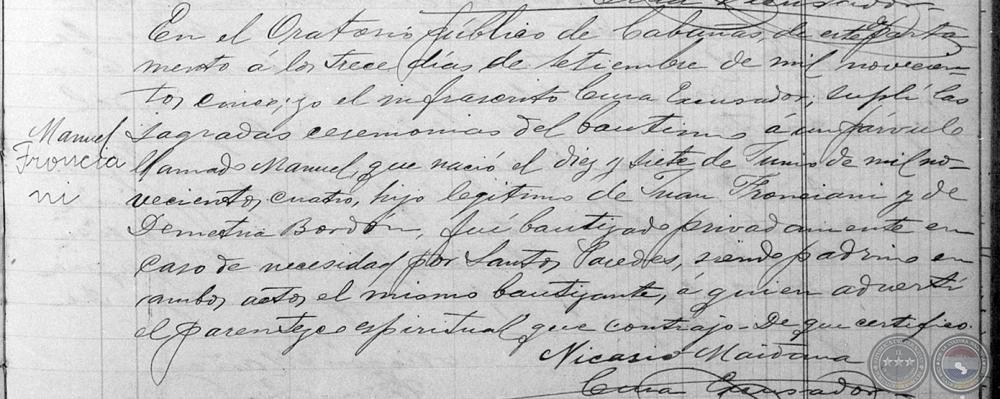 Cura Excusador.
En el Oratorio público de Cabañas, de este Parta
mento á los trece días de setiembre de mil novecen-
tos cinco; yo el infrascrito Cura Excusador, suplí las
sagradas ceremonias del bautismo á un párvulo
llamado Manuel que nació el diez y siete de Junio de mil no-
vecientos cuatro, hijo legitimo de Juan Fronciani y de
Demetria Bordón, fué bautizado privadamente en
caso de necesidad por Santos Paredes, siendo padrino en
ambos actos el mismo bautizante, á quien advertí
el parentezco espiritual que contrajo. De que certifico.
Nicasio Maidana
Cura Excusador
Manuel
Froncia
ni